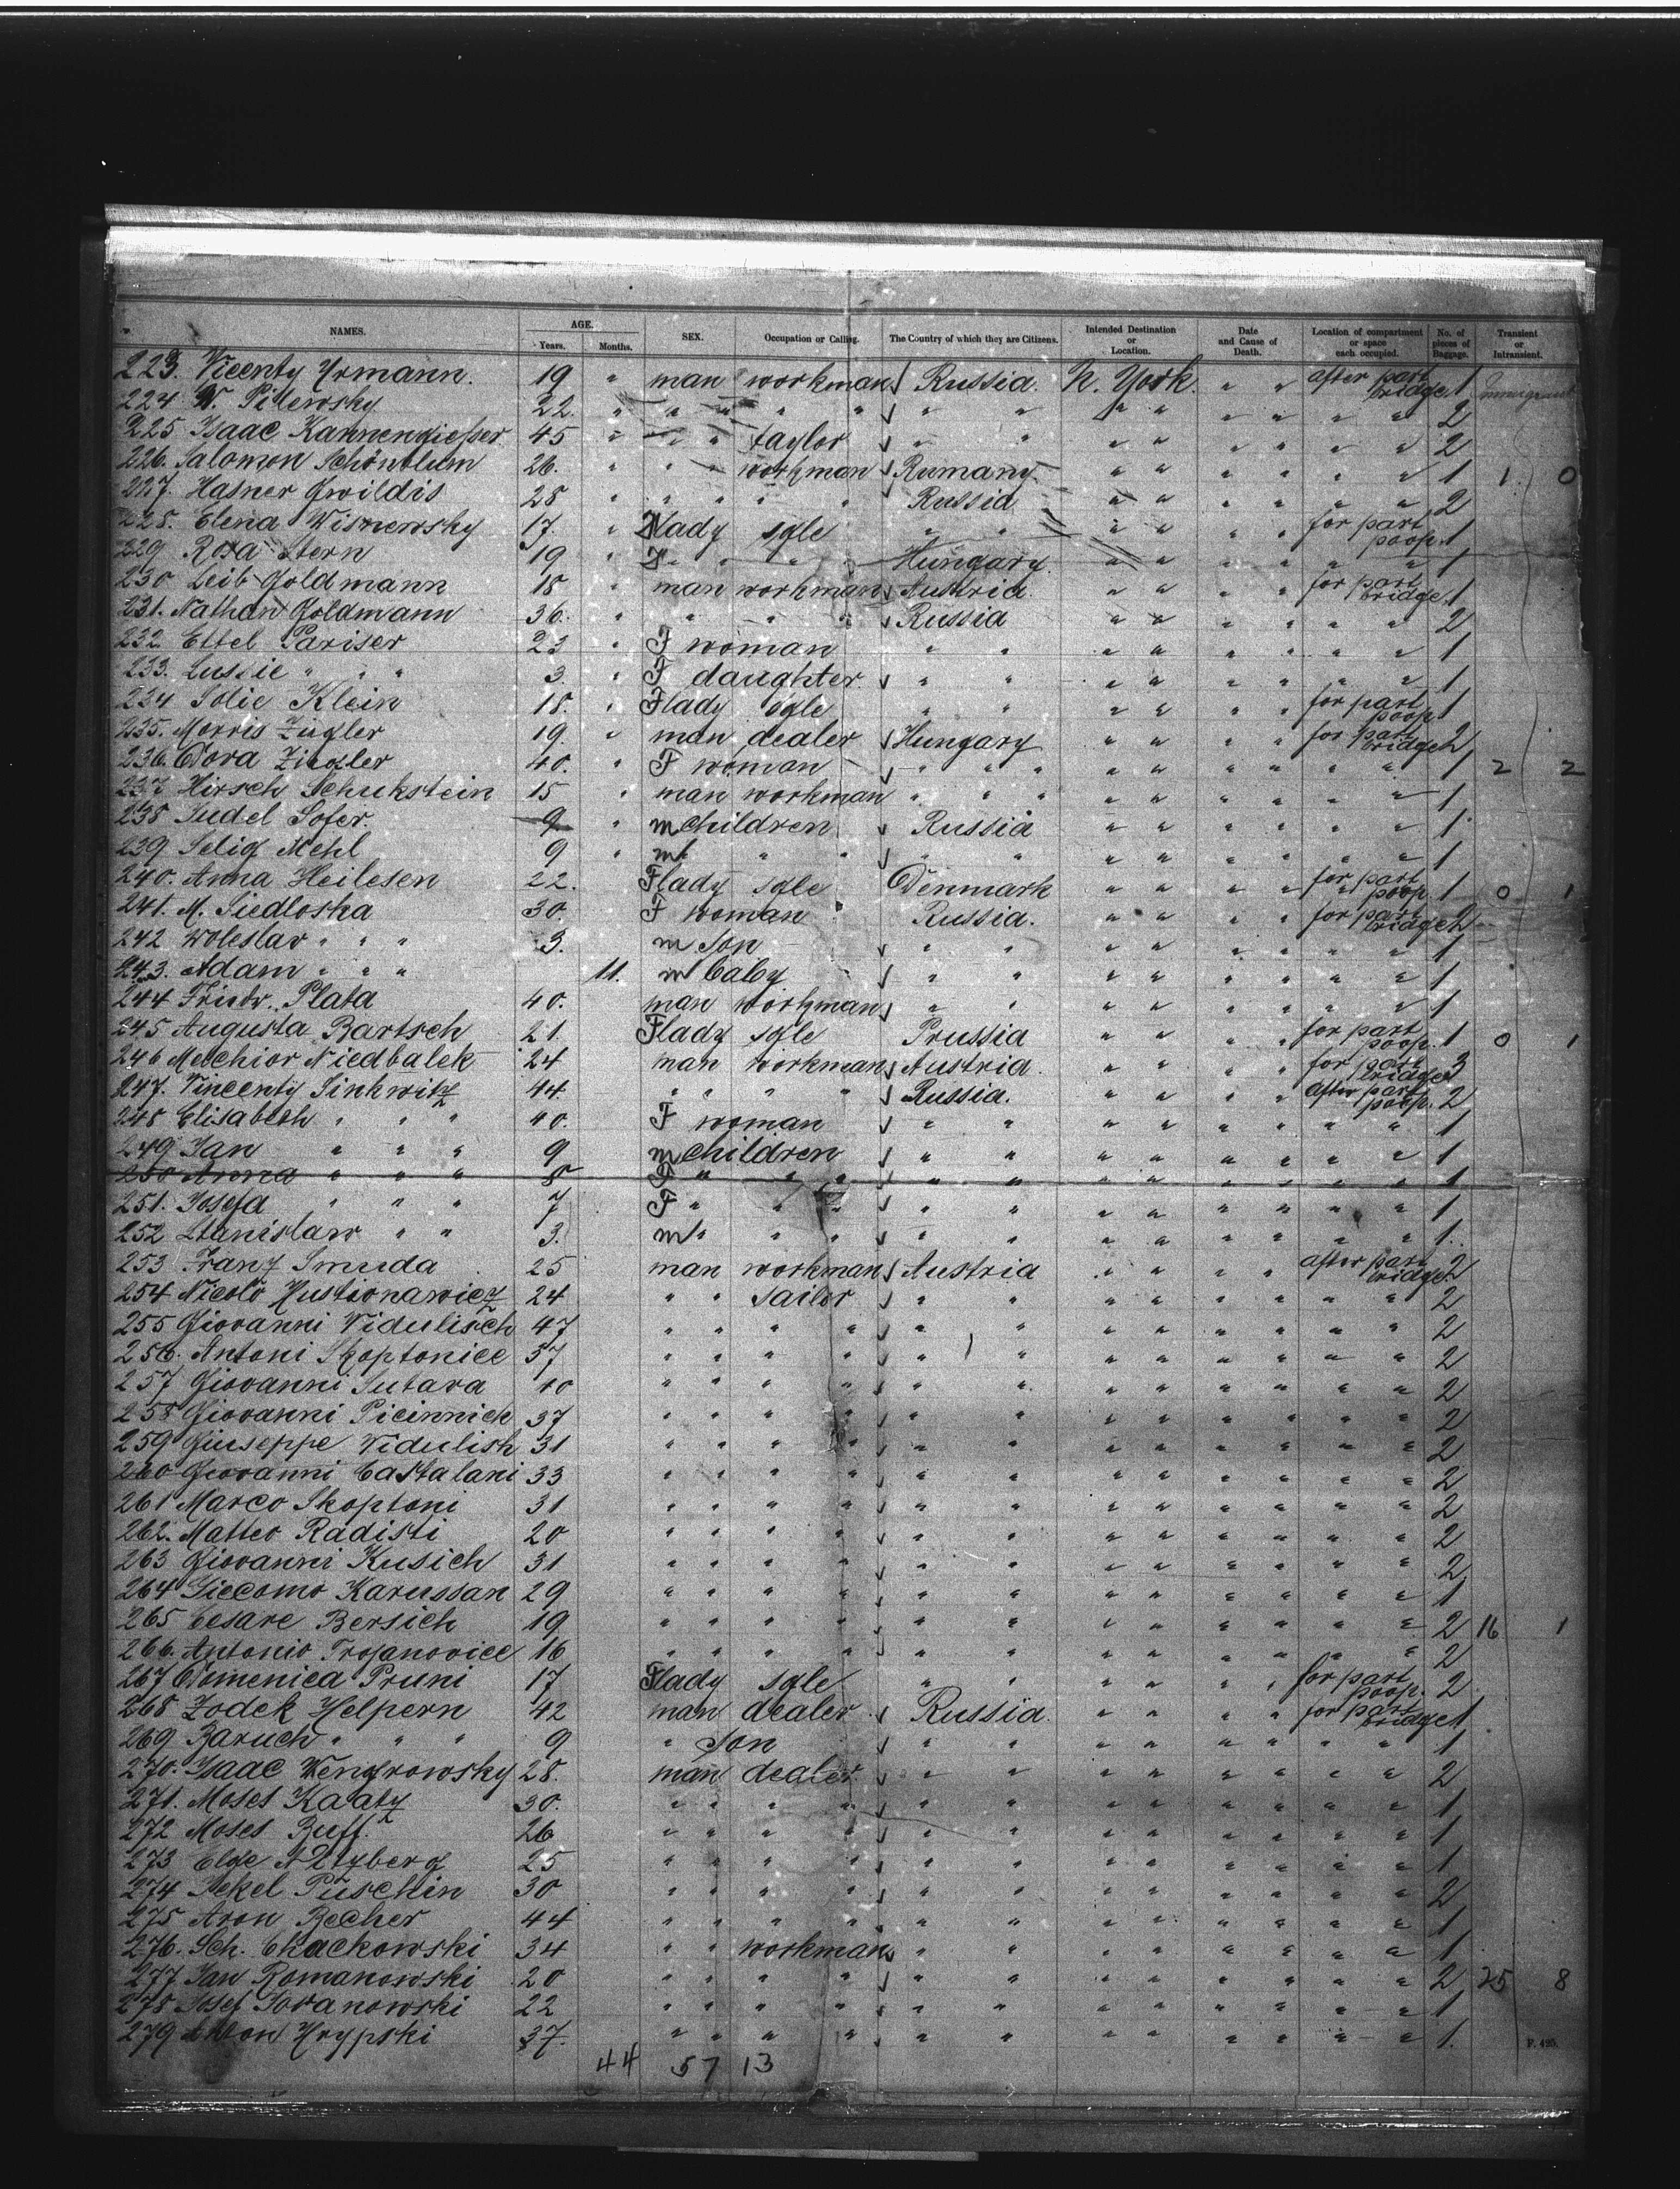 NAMES. AGE. Years. Months. SEX. Occupation or Calling. The Country of which they are Citizens. Intended Destination or Location. Date and Cause of Death. Location of compartment or space each occupied. No. of pieces of Baggage. Transient or Intransient.
223. Vicenty Yrmann. 19 " man workman Russia. N. York. " " after part bridge 1 Immigrant
224 W. Pilewsky 22. " " " " " " " " " " " " " 2
225 Isaac Kannengiesser 45 " " " taylor " " " " " " " " 2
226. Salomon Schönblum 26. " " " workman Rumany " " " " " " 1 1 0
227. Hasner Gwildis 28 " " " " " Russia " " " " " " 2
228. Elena Wisnewsky 17. " F lady sgle " " " " " " for part poop. 1
229 Rosa Stern 19 " F " " " Hungary. " " " " " " 1
230 Leib Goldmann 18 " man workman Austria. " " " " for part bridge. 1
231. Nathan Goldmann 36. " " " " Russia " " " " " " 2
232 Ettel Pariser 23 " F woman " " " " " " " " 1
233. Lussie " " " 3. " F daughter " " " " " " " " 1
234 Solie Klein 18. " F lady sgle " " " " " " for part poop 1
235. Morris Zugler 19. " man dealer Hungary " " " " for part bridge 2
236. Dora Ziegler 40. " F woman " " " " " " " " " 1 2 2
237 Hirsch Schukstein 15 " man workman " " " " " " " " " 1
238 Judel Sofer. 9 " m children Russia " " " " " " 1
239 Selig Mehl 9 " m " " " " " " " " " " " 1
240. Anna Heilesen 22. F lady sgle Denmark " " " " for part poop. 1 0 1
241. M. Siedloska 30. F woman Russia. " " " " for part bridge 2
242 Woleslav " " " 3. m son " " " " " " " " 1
243. Adam " " " 11. m baby " " " " " " " " 1
244 Friedr. Plata 40. man workman " " " " " " " " 1
245 Augusta Bartsch 21. F lady sgle Prussia " " " " for part poop. 1 0 1
246 Melchior Niedbalek 24 man workman Austria. " " " " for part bridge 3
247. Vincenty Sinkwitz 44. " " " " Russia. " " " " after part poop. 2
248 Elisabeth " " " 40. F woman " " " " " " " " 1
249 Jan " " " 9 m children " " " " " " " " 1
250 Anna " " " 8 F " " " " " " " " " " " 1
251. Josefa " " " 7 F " " " " " " " " " " " 1
252 Stanislaw " " 3. m " " " " " " " " " " " 1.
253 Franz Smuda 25 man workman Austria " " " " after part bridge 2
254 Nicolo Hustionawicz 24 " " sailor " " " " " " " " 2
255 Giovanni Vidulisch 47 " " " " " " " " " " " " 2
256. Antoni Skoptonice 37 " " " " " " " " " " " " 2
257 Giovanni Sutara 40 " " " " " " " " " " " " 2
258 Giovanni Picinnich 37 " " " " " " " " " " " " 2
259 Giuseppe Vidulish 31 " " " " " " " " " " " " 2
260 Giovanni Castalani 33 " " " " " " " " " " " " 2
261 Marco Skoptoni 31 " " " " " " " " " " " " 2
262. Matteo Radisti 20 " " " " " " " " " " " " 2
263 Giovanni Kusich 31 " " " " " " " " " " " " 2
264 Giccomo Karussan 29 " " " " " " " " " " " " 1
265 Cesare Bersich 19 " " " " " " " " " " " " 2 16 1
266. Antonio Trojanovice 16 " " " " " " " " " " " " 2
267 Domenica Pruni 17 F lady sgle " " " " " " for part poop. 2
268 Zodek Helpern 42 man dealer Russia. " " " " for part bridge 1
269 Baruch " " " 9 " son " " " " " " " " 1
270. Isaac Wengrowsky 28. man dealer " " " " " " " " 2
271. Moses Kaatz 30. " " " " " " " " " " " " 1
272 Moses Buff. 26 " " " " " " " " " " " " 1
273 Elge 25 " " " " " " " " " " " " 1
274 Jekel Püschin 30 " " " " " " " " " " " " 2
275 Aron Becher 44 " " " " " " " " " " " " 1
276. Sch. Chackowski 34 " " workman " " " " " " " " 1
277 Jan Romanowski 20 " " " " " " " " " " " " 2 25 8
278 Josef Joranowski 22 " " " " " " " " " " " " 1
279 Anton Hrypski 37. " " " " " " " " " " " " 1.
44 57 13